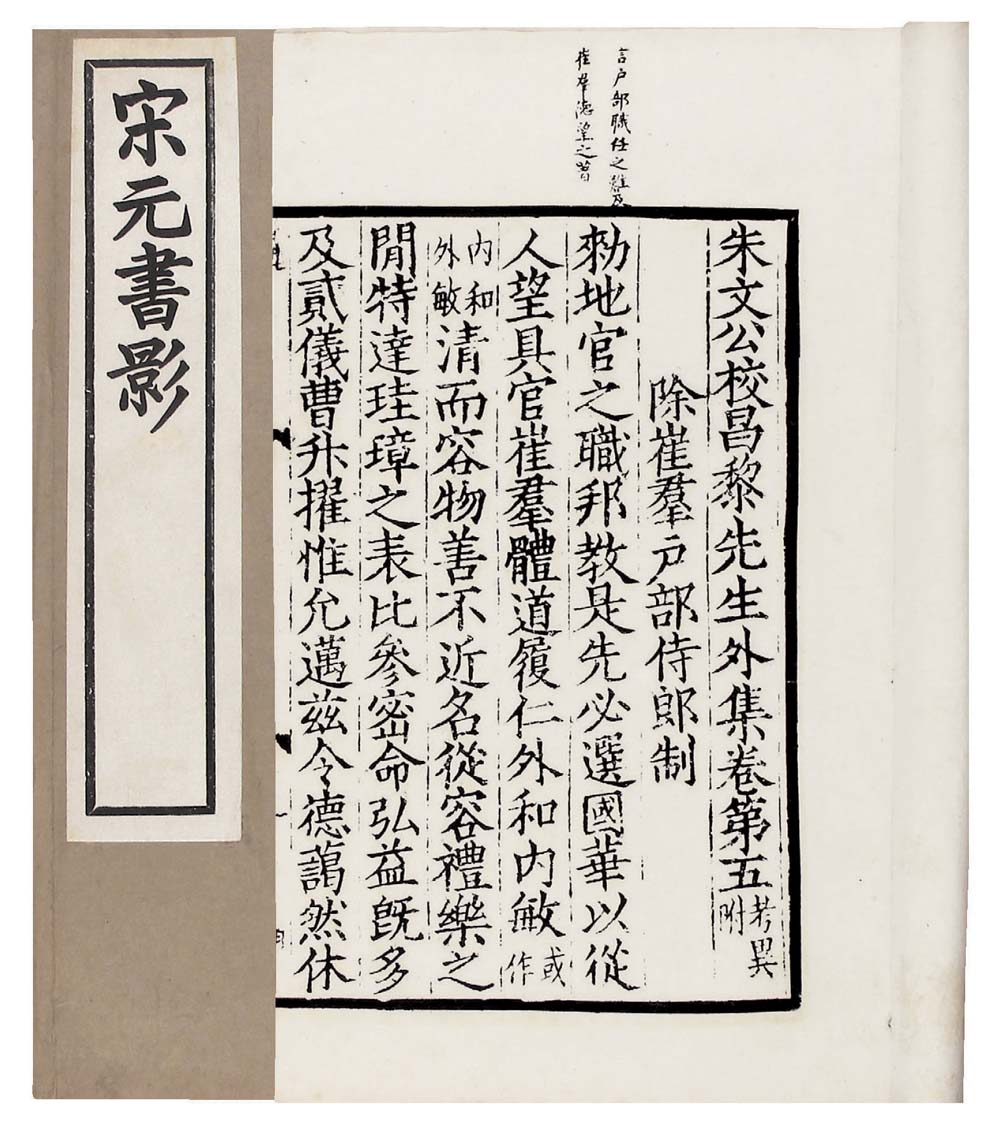 宋元書影
言戶部職任之難及
崔群德望之善
朱文公校昌黎先生外集卷第五
考異
附
除崔羣戶部侍郎制
勑地官之職邦教是先必選國華以從
人望具官崔羣體道履仁外和内敏
或
作
内和
外敏
清而容物善不近名從容禮樂之
閒特達珪璋之表比參密命弘益旣多
及貳儀曹升擢惟允邁茲令德藹然休